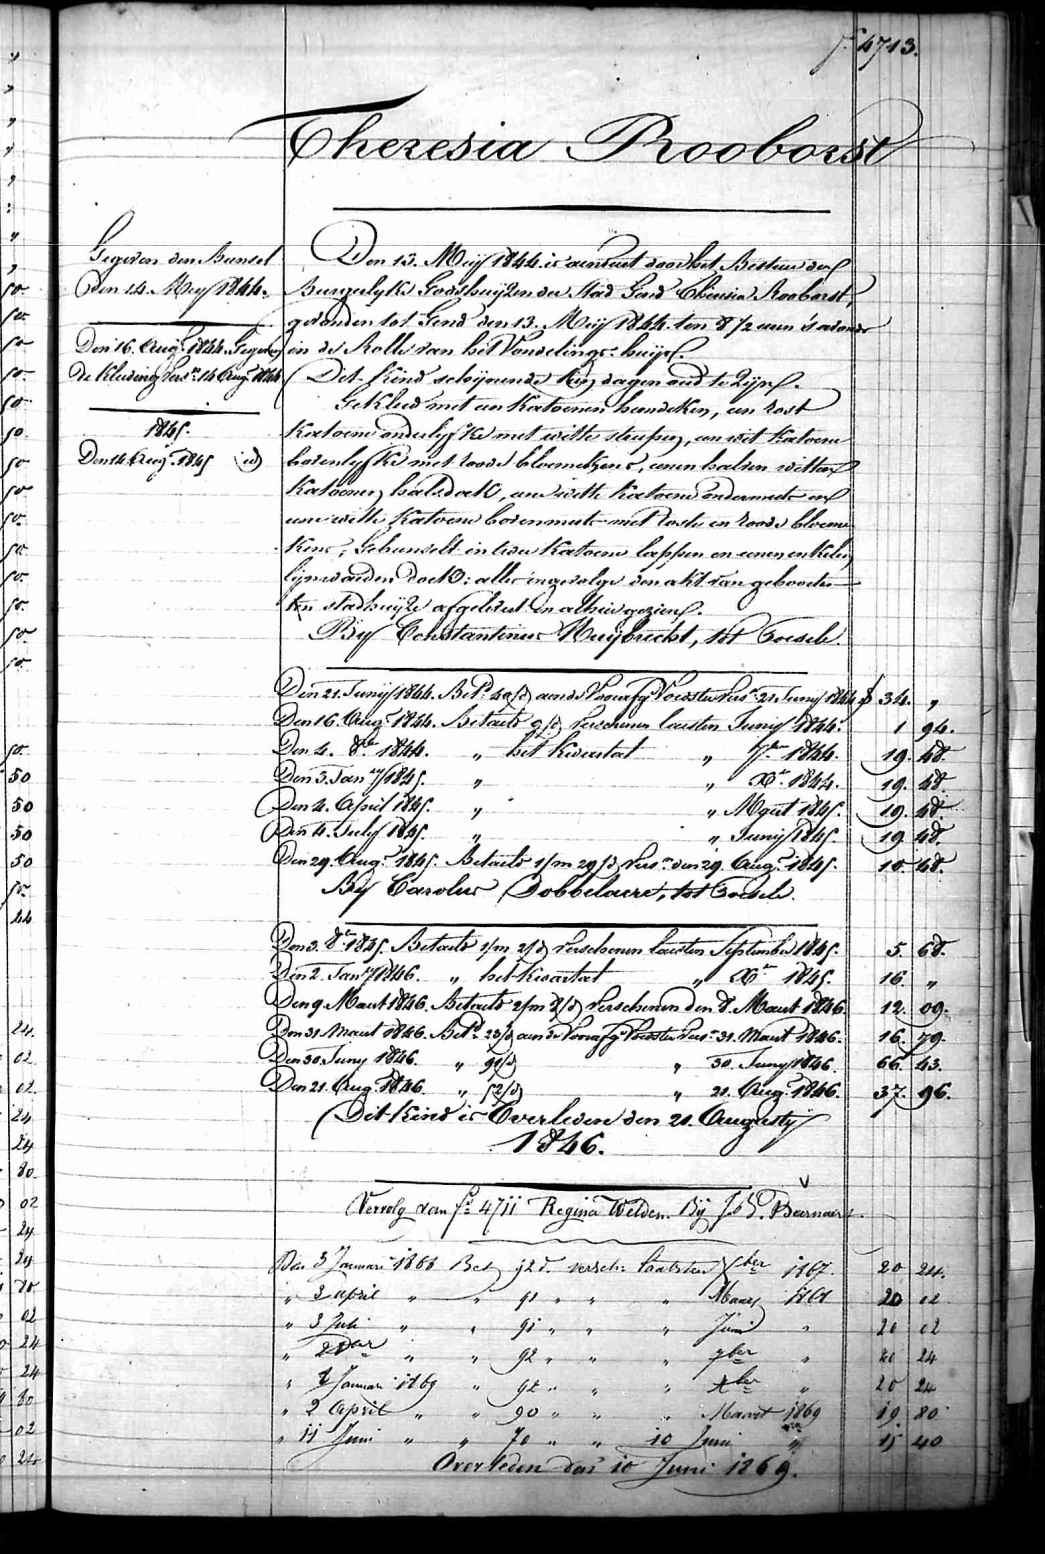 f.º 4713.
Theresia Rooborst
Gegeven den Bunsel
Den 14 Meij 1844.
Den 16. Augt 1844. Gegeven
de Kleeding Versn 14 Augt 1844
1845.
Den 14 Augt 1845 id
Den 13. Meij 1844. is aenveert door het Bestuer der
Burgerlyke Godshuijzen der Stad Gend Theresia Rooborst,
gevonden tot Gend den 13. Meij 1844. ten 8 1/2 uren 's avonds
in de Rolle van het Vondelings-huijs.
Dit Kind schijnende dagen oud te Zijn.
Gekleed met een Katoenen hemdeken, een rost
Katoene onderlyfke met witte streepen, een wit Katoene
bovenlyfke met roode bloemekens, eenen halven witten
Katoenen halsdoek, eene witte Katoene ondermuts en
eene witte Katoene bovenmuts met roste en roode bloeme-
kens, Gebunselt in twee Katoene lappen en eenen enkelen
lijnwaeden doek: alles ingevolge den akt van geboorte
ten stadhuijze afgelezet en alhier gezien.
Bij Constantinus Huijbrecht, tot
Den 21. Junij 1844. Betd 40/d aende Voorafge Voedster Versn 21. Junij 1844 f 34. „
Den 16. Augt 1844. Betaelt 9/d Verschenen laesten Junij 1844. 1 94.
Den 4. 8br 1844. „ het Kwartael „ 7br 1844. 19. 48.
Den 3. Jany 1845. „ „ Xbr 1844. 19. 48.
Den 4. April 1845. „ „ Maert 1845. 19. 48.
Den 4. July 1845. „ „ Junij 1845. 19 48.
Den 29. Augt 1845. Betaelt 1/m 29/d Versn den 29. Augt 1845. 10. 68.
Bij Carolus Dobbelaere, tot
Den 3. 8br 1845. Betaelt 1/m 2/d Verschenen laesten September 1845. 5. 68.
Den 2. Jany 1846. „ het Kwartael „ Xbr 1845. 16. „
Den 9 Maert 1846. Betaelt 2/m 8/d Verschenen den 8. Maert 1846. 12. 09.
Den 31 Maert 1846. Betd 23/d aen de Voorafge Voedster Versn 31. Maert 1846. 16. 79.
Den 30 Juny 1846. „ 91/d „ 30. Juny 1846. 66. 43.
Den 21. Augt 1846. „ 52/d „ 21. Augt 1846. 37. 96.
Dit Kind is Overleden den 21. Augusty
1846.
Vervolg van fº 4711 Regina Welden. Bij Beernaert.
Den 3 Januari 1868 Bet 92 d. versch: laatsten Xber 1867. 20 24.
„ 2 april „ „ 91 „ „ „ Maart 1868 20 02
„ 3 Juli „ „ 91 „ „ „ Juni „ 20 02
„ 2 8ber „ „ 92 „ „ „ 7ber „ 20 24
„ 2 Januari 1869 „ 92 „ „ „ Xber „ 20 24
„ 2 April „ „ 90 „ „ „ Maart 1869 19. 80
„ 11 Juni „ „ 70 „ „ 10 Juni „ 15 40
Overleden den 10 Juni 1869.